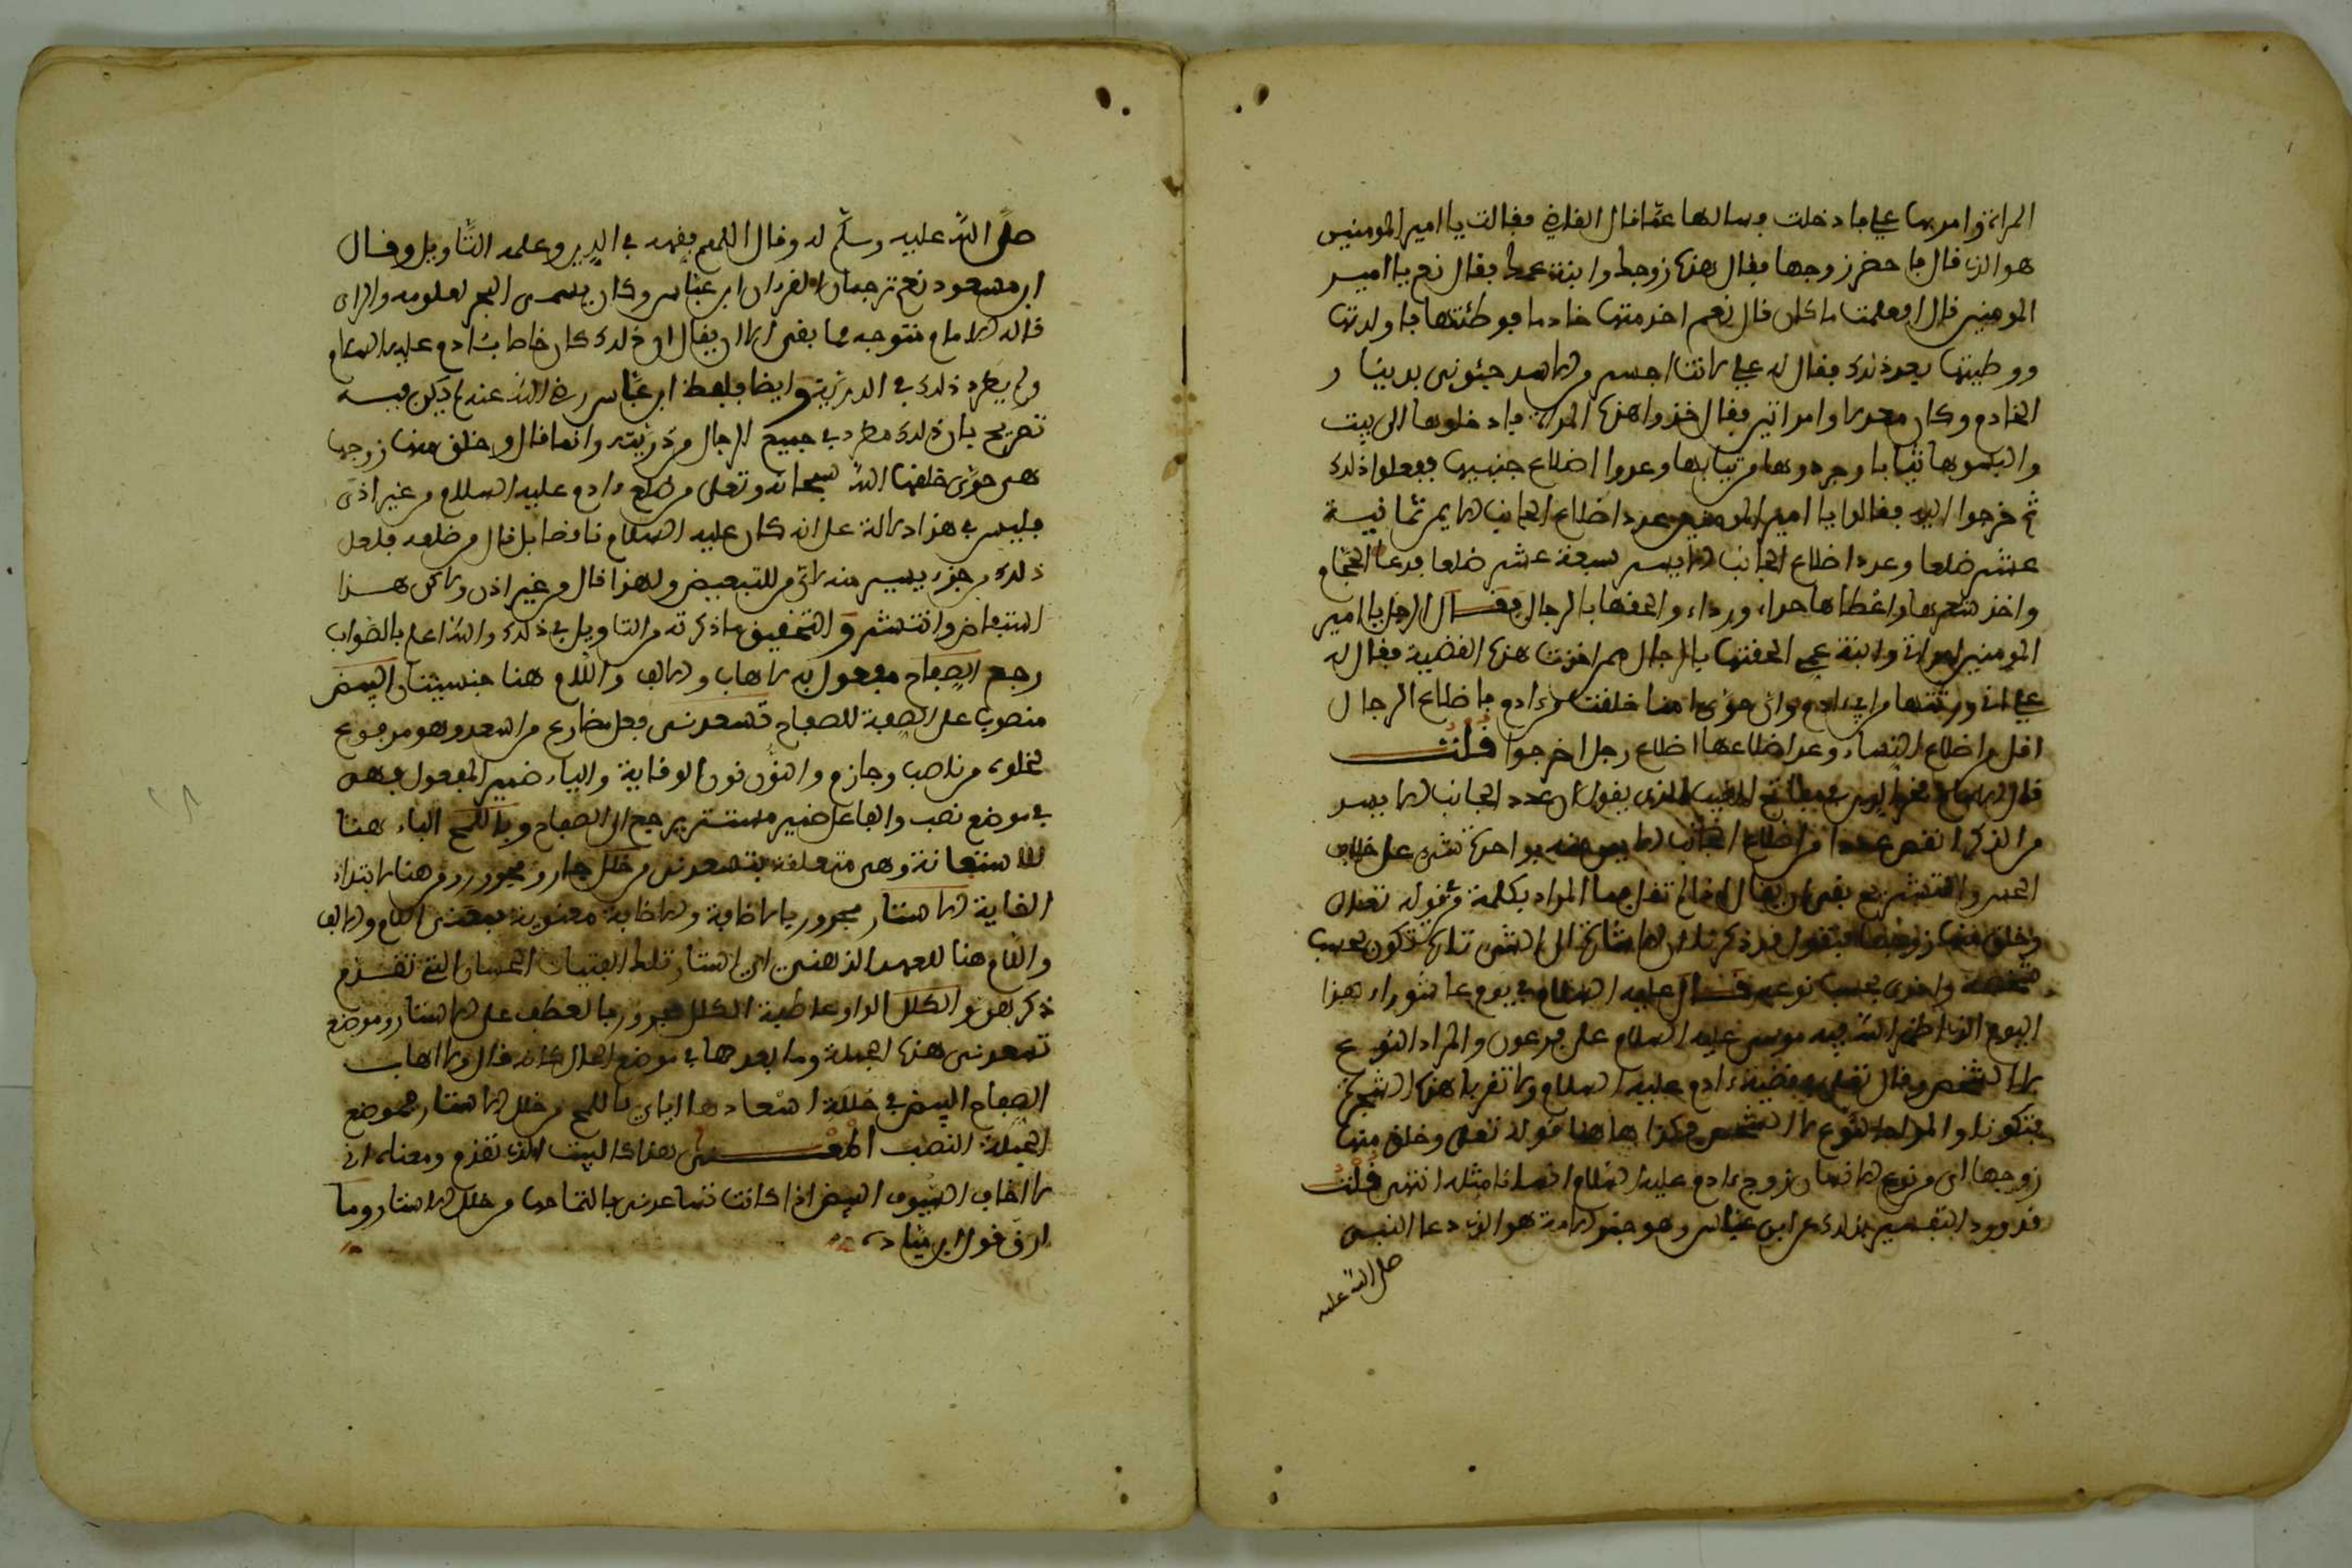 المراة وامر بها علي فادخلت وسالها عما قال القاضي فقالت يا امير المومنين
هو الذي قال فاحضر زوجها فقال هذه زوجك وابنة عمك فقال نعم يا امير
المومنين قال افعلمت ما كان قال نعم اخدمتها خادما فوطئتها فاولدتها
ووطيتها بعد ذلك فقال له علي لانت اجسر من الاسد جيئوني بدينار
الخادم وكان معدلا وامراتين فقال خذوا هذه المراة فادخلوها الى بيت
والبسوها ثيابا وجردوها من ثيابها وعدوا اضلاع جنبيها ففعلوا ذلك
ثم خرجوا اليه فقالوا يا امير المومنين عدد اضلاع الجانب الايمن ثمانية
عشر ضلعا وعدد اضلاع الجانب الايسر سبعة عشر ضلعا فدعا الحجام
واخذ شعرها واعطاها حذاء ورداء والحقها بالرجال فقال الرجل يا امير
المومنين امراتي وابنة عمي الحقتها بالرجال ممن اخذت هذه القضية فقال له
علي اني ورثتها من ابي ءادم وان حوى امنا خلقت من ءادم فاضلاع الرجال
اقل من اضلاع النساء وعد اضلاعها اضلاع رجل اخرجوا قلت
قال الامام فخر الدين في مفاتح الغيب الذي يقول ان عدد الجانب الايسر
من الذكر انقص عددا من اضلاع الجانب الايمن منه بواحدة شيء على خلاف
الحس والتشريح بقي ان يقال اذا لم تقل بهما المراد بكلمة من قوله تعلى
وخلق منها زوجها فنقول قد ذكرنا ان الاشارة الى الشيء تارة تكون بحسب
شخصه واخرى بحسب نوعه قال عليه السلام في يوم عاشوراء هذا
اليوم الذي اظهر الله فيه موسى عليه السلام على فرعون والمراد النوع
لا الشخص وقال تعلى في قضية ءادم عليه السلام ولا تقربا هذه الشجرة
فتكونا والمراد النوع لا الشخص فكذا هاهنا قوله تعلى وخلق منها
زوجها اي من نوع الانسان زوج ءادم عليه السلام انسانا مثله انتهى قلت
قد ورد التفسير بذلك عن ابن عباس وهو حبر الامة هو الذي دعا النبي
صلى الله عليه
صلى الله عليه وسلم له وقال اللهم فقهه في الدين وعلمه التاويل وقال
ابن مسعود نعم ترجمان القرءان ابن عباس وكان يسمى البحر لعلومه والذي
قاله الامام متوجه فما بقي الا ان يقال ان ذلك كان خاصا بئادم عليه السلام
ولم يطرد ذلك في الذرية وايضا فلفظ ابن عباس رضي الله عنه لم يكن فيه
تصريح بان ذلك مطرد في جميع الرجال من ذريته وانما قال وخلق منها زوجها
هي حوى خلقها الله سبحانه وتعلى من ضلع ءادم عليه السلام من غير اذى
فليس في هذا دلالة على انه كان عليه السلام ناقصا بل قال من ضلعه فلعل
ذلك من جزء يسير منه لان من للتبعيض ولهذا قال من غير اذى ولاكن هذا
استفاض وانتشر والتحقيق ما ذكرته من التاويل في ذلك والله اعلم بالصواب
رجع الصفاح مفعول به لاهاب والالف واللام هنا جنسيتان البيض
منصوب على الصفة للصفاح تسعدني فعل مضارع من السعد وهو مرفوع
لخلوه من ناصب وجازم والنون نون الوقاية والياء ضمير المفعول فهي
في موضع نصب والفاعل ضمير مستتر يرجع الى الصفاح وباللمح الباء هنا
للاستعانة وهي متعلقة بتسعدني من خلل جار ومجرور ومن هنا لابتداء
الغاية الاستار مجرور بالاضافة والاضافة معنوية بمعنى اللام والالف
واللام هنا للعهد الذهني اي استار تلك الفتيات الحسان التي تقدم
ذكرهن والكلل الواو عاطفة الكلل مجرور بالعطف على الاستار وموضع
تسعدني هذه الجملة وما بعدها في موضع الحال كانه قال ولا اهاب
الصفاح البيض في حالة اسعادها اياي باللمح من خلل الاستار فموضع
الجملة النصب المعنى هذا كالبيت الذي تقدم ومعناه اني
لا اخاف السيوف البيض اذا كانت تساعدني بالتماحها من خلل الاستار وما
ارق قول ابن نباتة